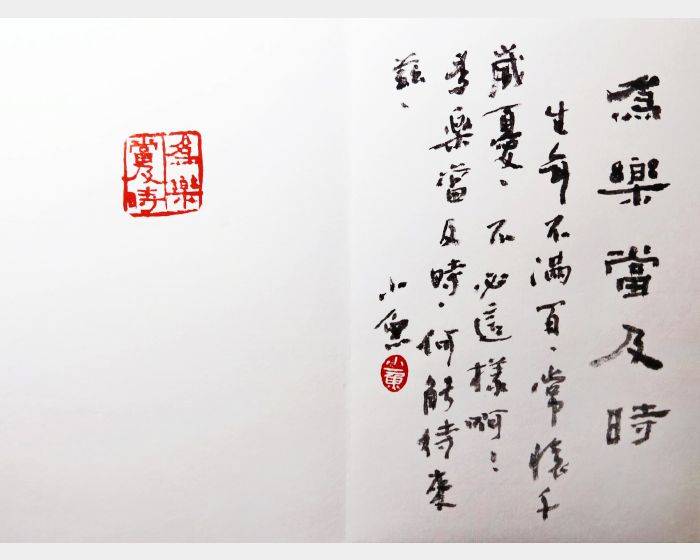 為樂當及時
生年不滿百、常懷千
歲憂、不必這樣啊：
為樂當及時、何能待來
茲、
小魚
小魚
為樂
當及時